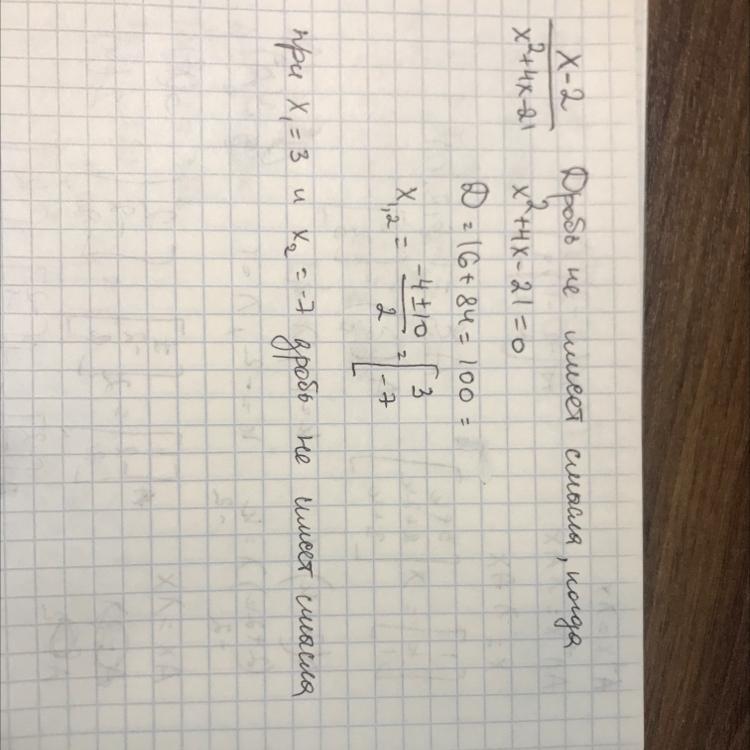 x-2
x²+4x-21
Дробь не имеет смысла, когда
x²+4x-21=0
D=16+84=100=
x₁,₂ = -4±10 / 2 = [ 3 -7
при x₁=3 и x₂=-7 дробь не имеет смысла